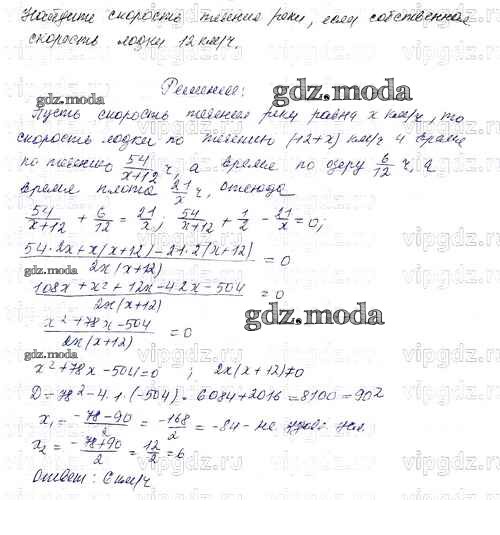 Найдите скорость течения реки, если собственная
скорость лодки 12 км/ч.
Решение:
gdz.moda
gdz.moda
Пусть скорость течения реки равна x км/ч, то
скорость лодки по течению (12+x) км/ч и время
по течению 54/(x+12) ч, а время по озеру 6/12 ч, а
время плота 21/x ч, отсюда
54/(x+12) + 6/12 = 21/x; 54/(x+12) + 1/2 - 21/x = 0;
(54·2x+x(x+12)-21·2(x+12))/(2x(x+12)) = 0
gdz.moda
(108x+x²+12x-42x-504)/(2x(x+12)) = 0
gdz.moda
(x²+78x-504)/(2x(x+12)) = 0
gdz.moda
x²+78x-504=0 ; 2x(x+12)≠0
D=78²-4·1·(-504)=6084+2016=8100=90²
x₁ = (-78-90)/2 = -168/2 = -84 - не
x₂ = (-78+90)/2 = 12/2 = 6
Ответ: 6 км/ч.
vipgdz.ru